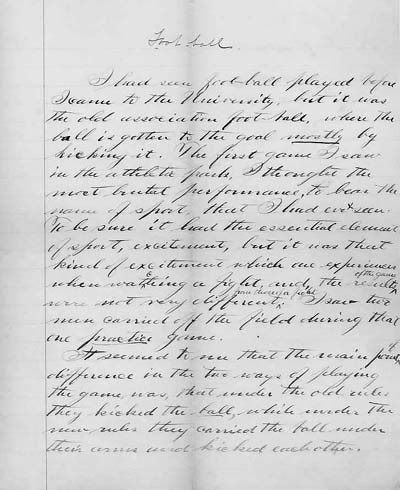 Foot ball.
I had seen foot-ball played before
I came to the University, but it was
the old association foot ball, where the
ball is gotten to the goal mostly by
kicking it. The first game I saw
in the athletic park, I thought the
most brutal performance, to bear the
name of sport, that I had ever seen.
To be sure it had the essential element
of sport, excitement, but it was that
kind of excitement which one experiences
when watching a fight, and, the results of the game
were not very different, from those of a fight. I saw two
men carried off the field during that
one practice game.
It seemed to me that the main point of
difference in the two ways of playing
the game was, that under the old rules
they kicked the ball, while under the
new rules they carried the ball under
their arms and kicked each other.